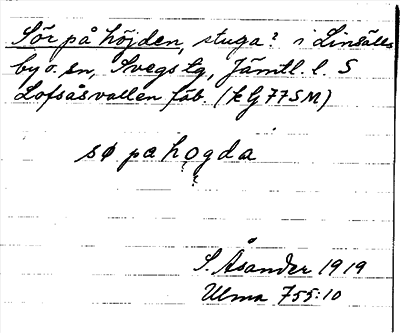 Sör på höjden, stuga? i Linsälls
by o. sn, Svegs tg, Jämtl. l. S
Lofsåsvallen fäb. (kG77SM)
sø pa hogda
S. Åsander 1919
Ulma 755:10